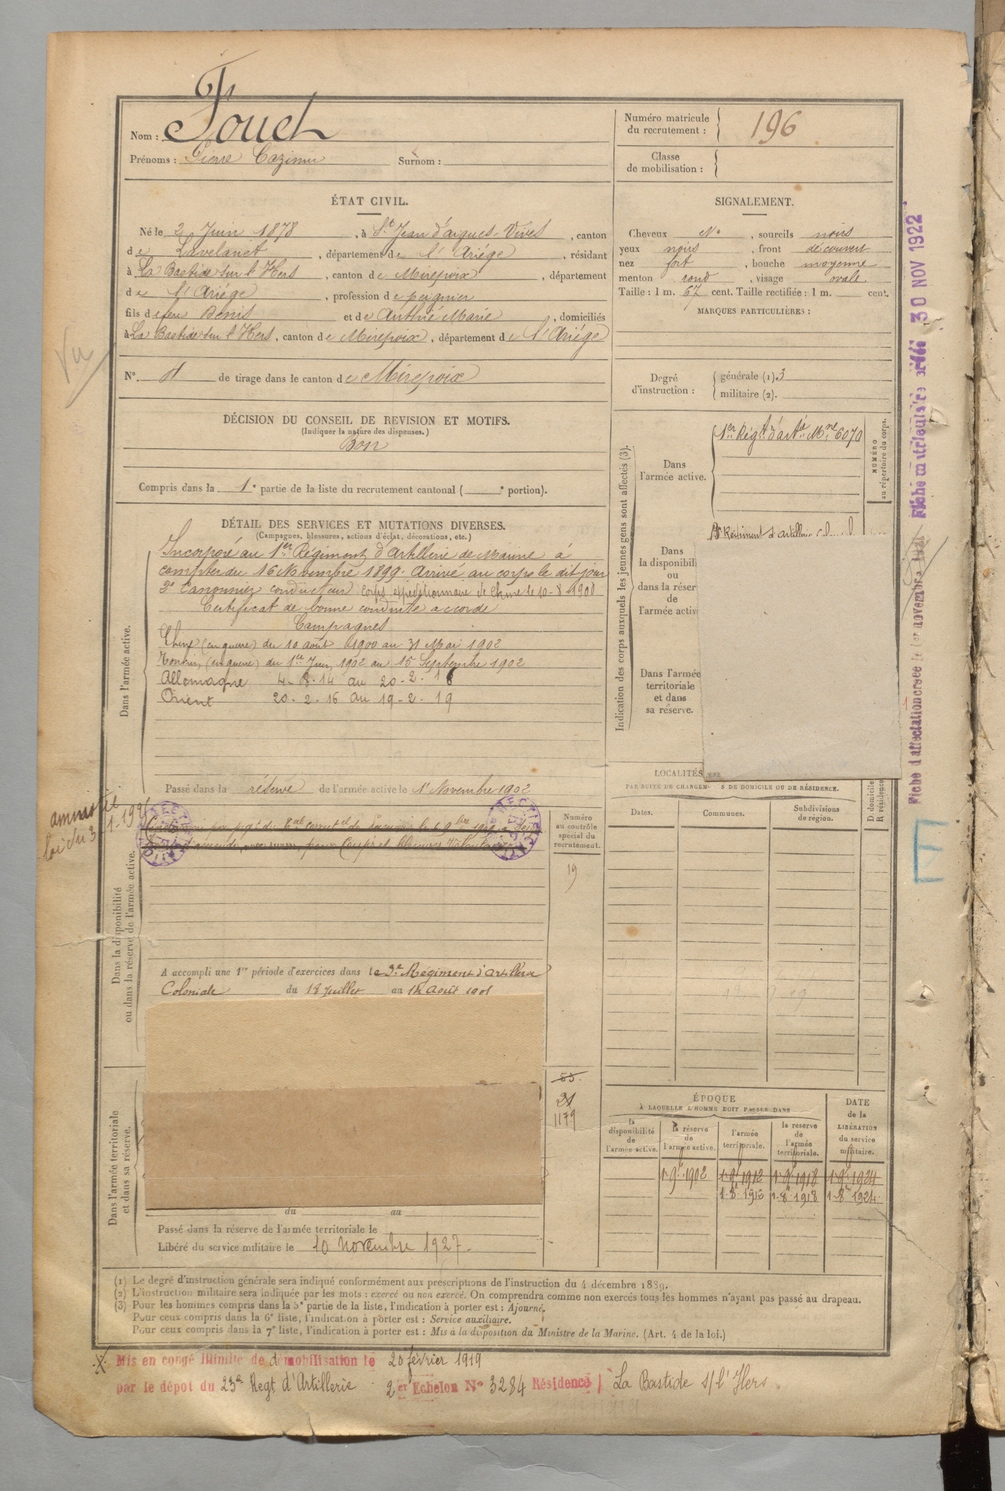 Nom : Fouch
Prénoms : Pierre Cazimir Surnom :
Numéro matricule du recrutement : 196
Classe de mobilisation :
ÉTAT CIVIL.
Né le 2 Juin 1878, à St Jean d'aigues-Vives, canton
de Lavelanet, département de l'Ariége, résidant
à La Bastide sur l'Hers, canton de Mirepoix, département
de l'Ariége, profession de peignier
fils de feu Dénis et de Antoine Marie, domiciliés
à La Bastide sur l'Hers, canton de Mirepoix, département de l'Ariége
N° de tirage dans le canton de Mirepoix
SIGNALEMENT.
Cheveux Nrs, sourcils noirs
yeux noirs, front découvert
nez fort, bouche moyenne
menton rond, visage ovale
Taille : 1 m. 67 cent. Taille rectifiée : 1 m. cent.
MARQUES PARTICULIÈRES :
Degré d'instruction : générale (1). 3
militaire (2).
DÉCISION DU CONSEIL DE REVISION ET MOTIFS.
(Indiquer la nature des dispenses.)
Bon
Compris dans la 1e partie de la liste du recrutement cantonal ( e portion).
Indication des corps auxquels les jeunes gens sont affectés (3).
Dans l'armée active.
1er Régt d'artie Mne 6070
NUMÉRO au répertoire du corps.
Dans la disponibili
ou
dans la réser
de
l'armée activ
Régiment d'artillerie
Dans l'armée
territoriale
et dans
sa réserve.
DÉTAIL DES SERVICES ET MUTATIONS DIVERSES.
(Campagnes, blessures, actions d'éclat, décorations, etc.)
Dans l'armée active.
Incorporé au 1er Régiment d'Artillerie de Marine à
compter du 16 Novembre 1899. Arrivé au corps le dit jour
2e Canonnier conducteur Corps expéditionnaire de Chine le 10-8-1900
Certificat de bonne conduite accordé
Campagnes
Chine (en guerre) du 10 août 1900 au 31 Mai 1902
Tonkin, (en guerre) du 1er Juin 1902 au 15 Septembre 1902
Allemagne 4-8-14 au 20-2-16
Orient 20-2-16 au 19-2-19
Passé dans la réserve de l'armée active le 1er Novembre 1902
LOCALITÉS
PAR SUITE DE CHANGEM S DE DOMICILE OU DE RÉSIDENCE.
Dates. Communes. Subdivisions de région. D. domicile R. résidence.
Numéro au contrôle spécial du recrutement.
19
amnistié
Loi du 3
Dans la disponibilité ou dans la réserve de l'armée active.
A accompli une 1re période d'exercices dans le 3e Régiment d'artillerie
Coloniale du 18 Juillet au 14 Août
53
1179
Dans l'armée territoriale et dans sa réserve.
du au
Passé dans la réserve de l'armée territoriale le
Libéré du service militaire le 10 novembre 1927.
ÉPOQUE
À LAQUELLE L'HOMME DOIT PASSER DANS
la disponibilité de l'armée active.
la réserve de l'armée active.
l'armée territoriale.
la réserve de l'armée territoriale.
DATE de la LIBÉRATION du service militaire.
1.9bre 1902 1.9bre 1912 1.9bre 1918 1.9bre 1924
1.8bre 1912 1.8bre 1918 1.8bre 1924
(1) Le degré d'instruction générale sera indiqué conformément aux prescriptions de l'instruction du 4 décembre 1889.
(2) L'instruction militaire sera indiquée par les mots : exercé ou non exercé. On comprendra comme non exercés tous les hommes n'ayant pas passé au drapeau.
(3) Pour les hommes compris dans la 5e partie de la liste, l'indication à porter est : Ajourné.
Pour ceux compris dans la 6e liste, l'indication à porter est : Service auxiliaire.
Pour ceux compris dans la 7e liste, l'indication à porter est : Mis à la disposition du Ministre de la Marine. (Art. 4 de la loi.)
Mis en congé illimité de démobilisation le 20 février 1919
par le dépot du 23e Regt d'Artillerie 2er Echelon N° 3284 Résidence La Bastide s/l'Hers.
Fiche matriculaire créée 30 NOV 1922
Fiche d'affectation créée le 1er novembre